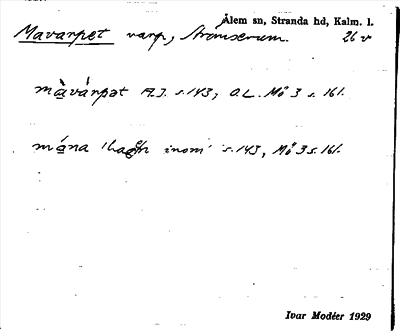 Ålem sn, Stranda hd, Kalm. l.
Mavarpet varp, Strömserum. 26 v
màvárpət A.J. s. 143, OL. Mö 3 s. 161.
mána inom' s. 143, Mö 3 s. 161.
Ivar Modéer 1929